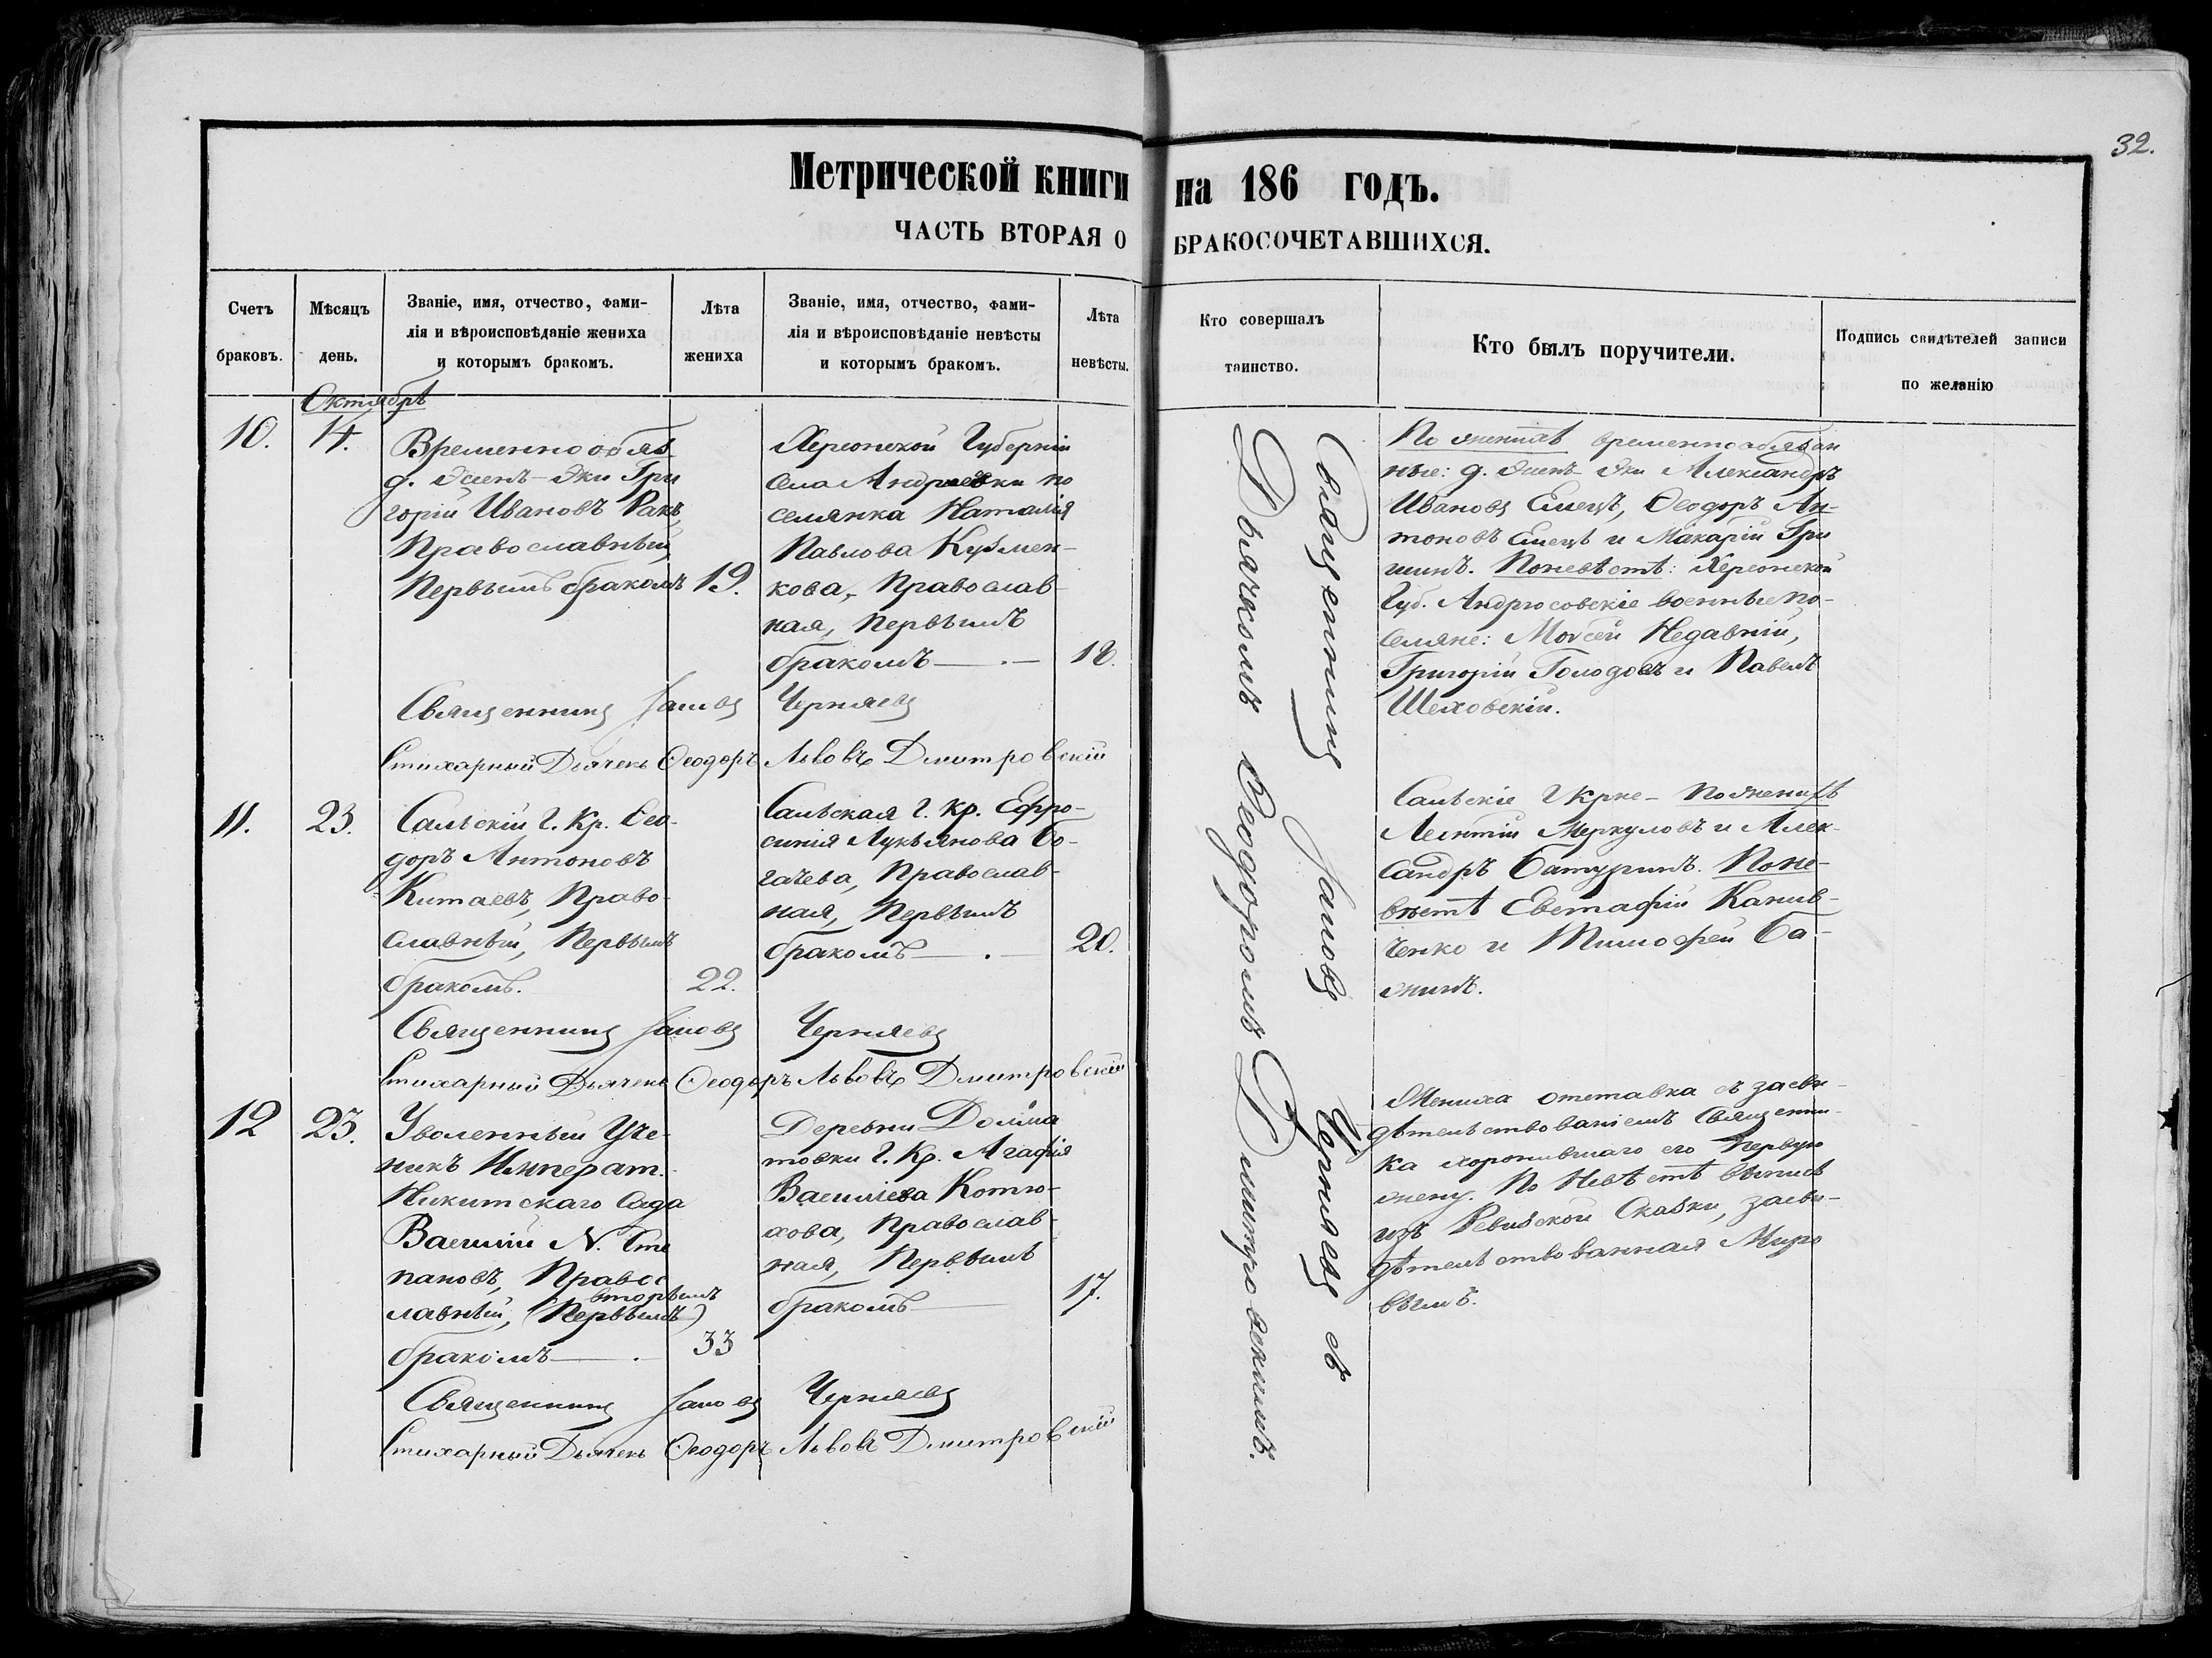 32.
Метрической книги на 186 годъ.
ЧАСТЬ ВТОРАЯ О БРАКОСОЧЕТАВШИХСЯ.
Счетъ
браковъ.
Мѣсяцъ
день.
Званіе, имя, отчество, фами-
лія и вѣроисповѣданіе жениха
и которымъ бракомъ.
Лѣта
жениха
Званіе, имя, отчество, фами-
лія и вѣроисповѣданіе невѣсты
и которымъ бракомъ.
Лѣта
невѣсты.
Кто совершалъ
таинство.
Кто былъ поручители.
Подпись свидѣтелей записи
по желанію
Октябрѣ
10.
14.
Временнообяз.
д. Эсенъ-Эки Гри
горій Ивановъ Ракъ,
Православный,
Первымъ бракомъ
19.
Херсонской Губерніи
села Андреевки по
селянка Наталія
Павлова Кузмен-
кова, Православ-
ная, Первымъ
бракомъ
18.
По женихѣ временнообязан
ные: д. Эсенъ Эки Александръ
Ивановъ Емецъ, Ѳеодоръ Ан-
тоновъ Емецъ и Макарій Гри
шинъ. По невѣстѣ: Херсонской
Губ. Андрюсовскіе военные по-
селяне: Моѵсей Недавній,
Григорій Голодовъ и Павелъ
Шеховскій.
Священникъ Іаковъ Черняевъ
Стихарный Дьячекъ Ѳеодоръ Львовъ Дмитровскій
11.
23.
Сальскій Г. Кр. Ѳео-
доръ Антоновъ
Китаевъ, Право-
славный, Первымъ
бракомъ.
22.
Сальская Г. Кр. Ефро-
синія Лукьянова Бо-
гачева, Православ-
ная, Первымъ
бракомъ
20.
Сальскіе Г Крне - По женихѣ
Леонтій Меркуловъ и Алек-
сандръ Батуринъ. По не-
вѣстѣ Евстафій Канив-
ченко и Тимофей Ба-
жинъ.
Священникъ Іаковъ Черняевъ
Стихарный Дьячекъ Ѳеодоръ Львовъ Дмитровскій
12
23.
Уволенный Уче-
никъ Императ.
Никитскаго Сада
Василій N. Сте
пановъ, Правос
лавный, (Первымъ)
вторымъ
бракомъ
33
Деревни Долма
товки Г. Кр. Агафія
Васильева Котю-
хова, Православ-
ная, Первымъ
бракомъ
17.
Жениха отставка съ засви-
дѣтельствованіемъ Священни-
ка хоронившаго его первую
жену. По Невѣстѣ выпись
изъ Ревизской Сказки, засви-
дѣтельствованная Миро
вымъ.
Священникъ Іаковъ Черняевъ
Стихарный Дьячекъ Ѳеодоръ Львовъ Дмитровскій
Священникъ Іаковъ Черняевъ съ
Дьячкомъ Ѳеодоромъ Дмитровскимъ.